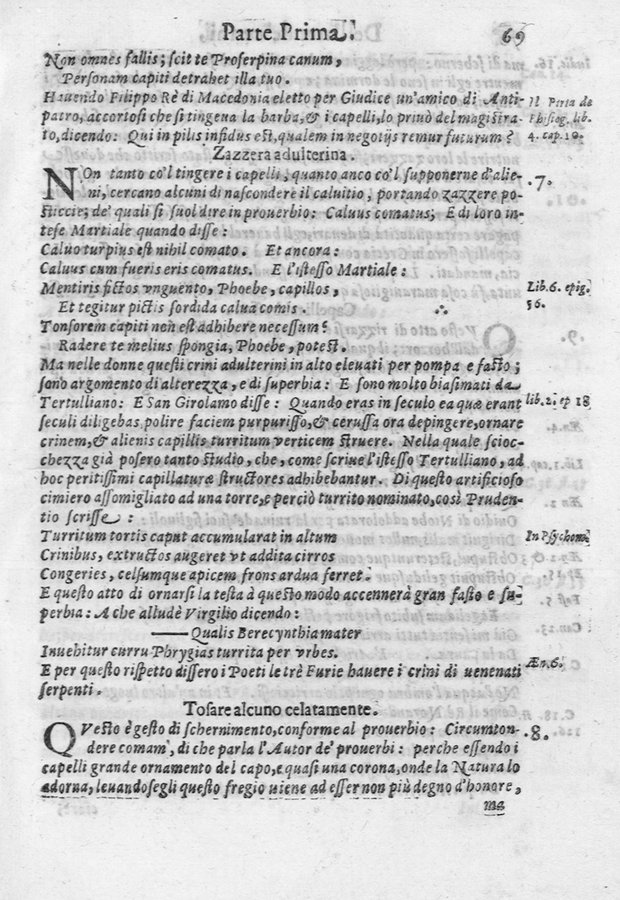 Parte Prima. 69
Non omnes fallis; ſcit te Proſerpina canum,
Perſonam capiti detrahet illa tuo.
Hauendo Filippo Rè di Macedonia eletto per Giudice un'amico di Anti-
patro, accortoſi che ſi tingena la barba, & i capelli, lo priuò del magiſtra-
to, dicendo: Qui in pilis infidus eſt, qualem in negotijs remur futurum?
Il Pieria de
Phiſiog. lib.
4. cap. 10.
Zazzera adulterina.
NOn tanto co'l tingere i capelli, quanto anco co'l ſupponerne d'alie-
ni, cercano alcuni di naſcondere il caluitio, portando zazzere po-
ſticcie; de' quali ſi ſuol dire in prouerbio: Caluus comatus; E di loro in-
teſe Martiale quando diſſe:
.7.
Caluo turpius eſt nihil comato. Et ancora:
Caluus cum fueris eris comatus. E l'iſteſſo Martiale:
Mentiris fictos vnguento, Phoebe, capillos,
Et tegitur pictis ſordida calua comis.
Lib. 6. epig.
56.
Tonſorem capiti non eſt adhibere neceſſum?
Radere te melius ſpongia, Phoebe, poteſt.
Ma nelle donne queſti crini adulterini in alto eleuati per pompa e faſto;
ſono argomento di alterezza, e di ſuperbia: E ſono molto biaſimati da
Tertulliano: E San Girolamo diſſe: Quando eras in ſeculo ea quæ erant
lib. 2. ep 18
ſeculi diligebas, polire faciem purpuriſſo, & ceruſſa ora depingere, ornare
crinem, & alienis capillis turritum verticem ſtruere. Nella quale ſcioc-
chezza già poſero tanto ſtudio, che, come ſcriue l'iſteſſo Tertulliano, ad
hoc peritiſſimi capillaturæ ſtructores adhibebantur. Di queſto artificioſo
cimiero aſſomigliato ad una torre, e perciò turrito nominato, così Pruden-
tio ſcriſſe:
Turritum tortis caput accumularat in altum
In Pſychom.
Crinibus, extructos augeret vt addita cirros
Congeries, celſumque apicem frons ardua ferret.
E queſto atto di ornarſi la teſta à queſto modo accennerà gran faſto e ſu-
perbia: A che alludè Virgilio dicendo:
—— Qualis Berecynthia mater
Inuehitur curru Phrygias turrita per vrbes.
Æn. 6.
E per queſto riſpetto diſſero i Poeti le trè Furie hauere i crini di uenenati
ſerpenti.
Toſare alcuno celatamente.
QVeſto è geſto di ſchernimento, conforme al prouerbio: Circumton-
dere comam, di che parla l'Autor de' prouerbi: perche eſſendo i
capelli grande ornamento del capo, e quaſi una corona, onde la Natura lo
adorna, leuandoſegli queſto fregio uiene ad eſſer non più degno d'honore,
.8.
ma